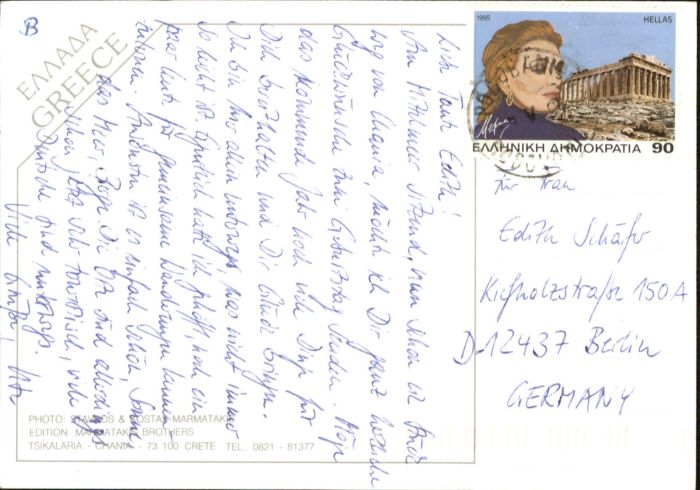 B
ΕΛΛΑΔΑ
GREECE
Liebe Tante Edith!
Am Mittelmeer sitzend,
von Chania, möchte ich Dir ganz herzliche
Glückwünsche zum Geburtstag senden. Möge
das kommende Jahr noch viele Dinge für
Dich bereithalten und Dir Freude bringen.
Ich bin hier allein unterwegs, was nicht immer
so leicht ist. Eigentlich hatte ich gehofft, noch ein
paar Leute für gemeinsame Wanderungen kennen-
zulernen. Ansonsten ist es einfach schön, Sonne,
das Meer, Die Orte sind allerdings
schon jetzt sehr touristisch, viele
Deutsche sind unterwegs.
Viele Grüße,
PHOTO: STAVROS & KOSTAS MARMATAKI
EDITION: MARMATAKI BROTHERS
TSIKALARIA - CHANIA - 73 100 CRETE TEL. 0821 - 81377
1995
HELLAS
ΕΛΛΗΝΙΚΗ ΔΗΜΟΚΡΑΤΙΑ 90
für Frau
Edith Schäfer
Kiefholzstraße 150A
D-12437 Berlin
GERMANY